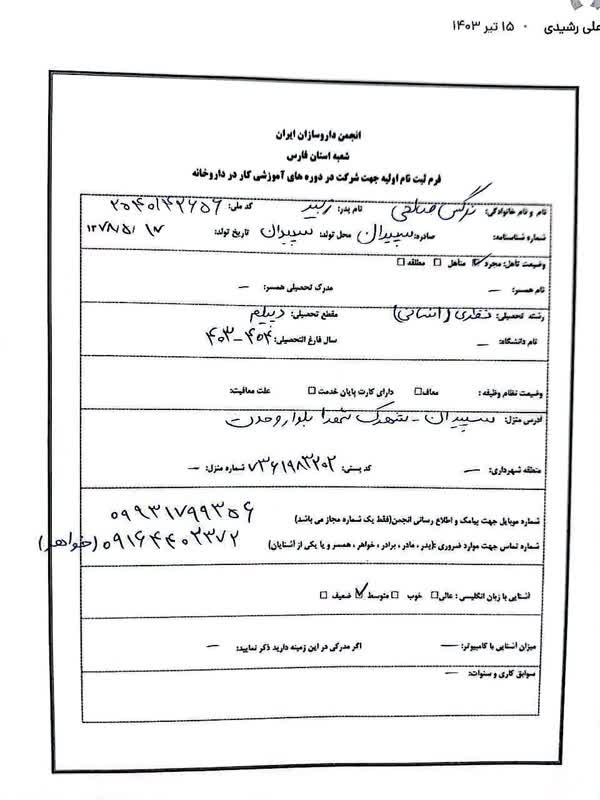 علی رشیدی · ۱۵ تیر ۱۴۰۳
انجمن داروسازان ایران
شعبه استان فارس
فرم ثبت نام اولیه جهت شرکت در دوره های آموزشی کار در داروخانه
نام و نام خانوادگی: نرگس نام پدر: زبیر کد ملی:
شماره شناسنامه: صادره: سپیدان محل تولد: سپیدان تاریخ تولد: ۱۳۷۸/۵/۱۷
وضعیت تاهل: مجرد ☑ متاهل ☐ مطلقه ☐
نام همسر: – مدرک تحصیلی همسر: –
رشته تحصیلی: نظری (انسانی) مقطع تحصیلی: دیپلم
نام دانشگاه: – سال فارغ التحصیلی: ۴۰۳-۴۰۴
وضعیت نظام وظیفه : معاف ☐ دارای کارت پایان خدمت ☐ علت معافیت:
آدرس منزل: سپیدان - شهرک شهدا بلوار وحدت
منطقه شهرداری: – کد پستی: ۷۳۶۱۹۸۳۲۰۲ شماره منزل: –
شماره موبایل جهت پیامک و اطلاع رسانی انجمن(فقط یک شماره مجاز می باشد) ۰۹۹۳۱۷۹۹۳۵۶
شماره تماس جهت موارد ضروری :(پدر ، مادر ، برادر ، خواهر ، همسر و یا یکی از آشنایان) ۰۹۱۶۴۴۰۲۳۷۲ (خواهر)
آشنایی با زبان انگلیسی : عالی ☐ خوب ☐ متوسط ☑ ضعیف ☐
میزان آشنایی با کامپیوتر: – اگر مدرکی در این زمینه دارید ذکر نمایید: –
سوابق کاری و سنوات: –